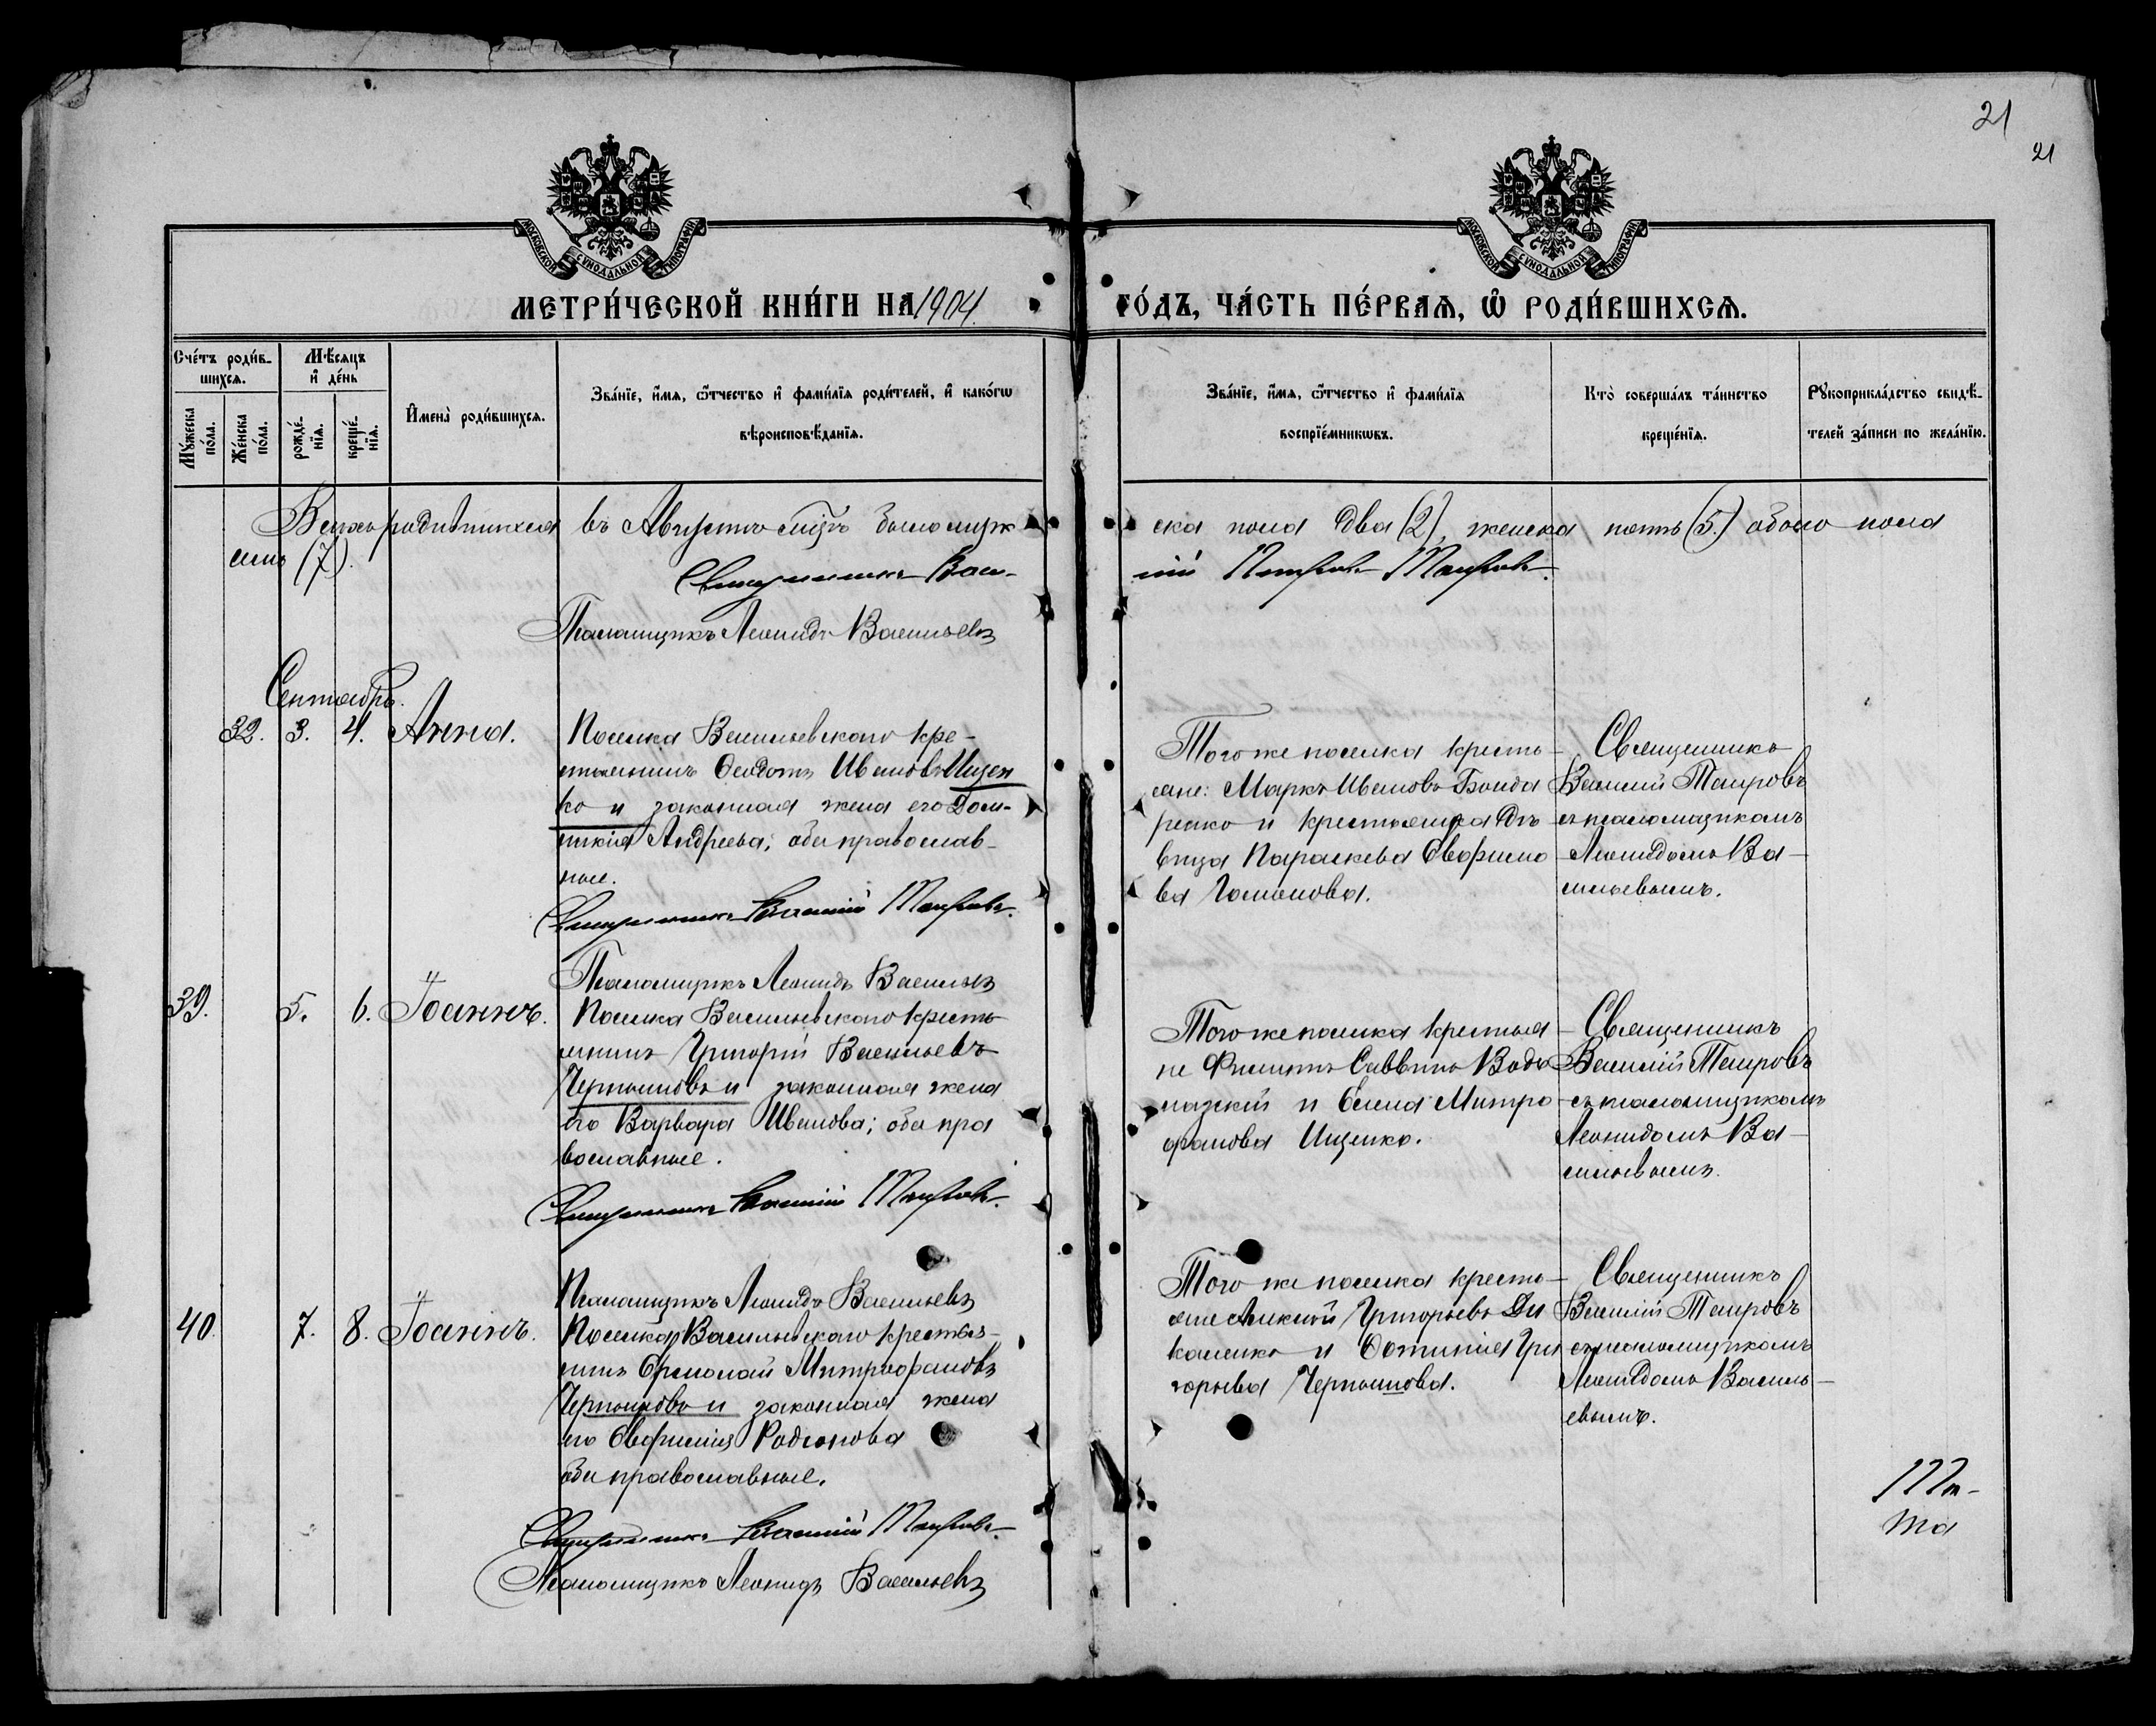 21
21
МОСКОВСКОЙ СѴНОДАЛЬНОЙ ТИПОГРАФІИ
МОСКОВСКОЙ СѴНОДАЛЬНОЙ ТИПОГРАФІИ
МЕТРИ́ЧЕСКОЙ КНИ́ГИ НА 1904 ГО́ДЪ, ЧА́СТЬ ПЕ́РВАѦ, Ѽ РОДИ́ВШИХСѦ.
Сче́тъ роди́в-
шихсѧ.
Мꙋ́жеска по́ла.
Же́нска по́ла.
Мѣ́сѧцъ
и҆ де́нь
рожде́-
нїѧ.
креще́-
нїѧ.
И҆мена̀ роди́вшихсѧ.
Зва́нїе, и҆́мѧ, ѻ҆́тчество и҆ фами́лїѧ роди́телей, и҆ како́гѡ
вѣроисповѣ́данїѧ.
Зва́нїе, и҆́мѧ, ѻ҆́тчество и҆ фами́лїѧ
воспрїе́мникѡвъ.
Кто̀ соверша́лъ та́инство
креще́нїѧ.
Рꙋкоприкла́дство свидѣ́-
телей за́писи по жела́нїю.
Всѣхъ родившихся въ Августѣ мѣсѣ было муж
ска пола два (2), женска пять (5.) обоего пола
семь (7).
Священникъ Васи-
лій Петровъ Таировъ.
Псаломщикъ Леонидъ Васильевъ
Сентябрь.
32. 3. 4. Анна.
Поселка Васильевскаго кре-
стьянинъ Ѳеодотъ Ивановъ Ищен
ко и законная жена его Дом-
никія Андреева; оба православ-
ные.
Священникъ Василій Таировъ.
Псаломщикъ Леонидъ Васильевъ
Того же поселка кресть-
яне: Маркъ Ивановъ Бонда
ренко и крестьянка дѣ
вица Параскева Евфимо
ва Гоманова.
Священникъ
Василій Таировъ
съ псаломщикомъ
Леонидомъ Ва-
сильевымъ.
39. 5. 6. Іоаннъ.
Поселка Васильевскаго кресть
янинъ Григорій Васильевъ
Черноиновъ и законная жена
его Варвара Иванова; оба пра
вославные.
Священникъ Василій Таировъ.
Псаломщикъ Леонидъ Васильевъ
Того же поселка крестья
не Филиппъ Саввинъ Водо
лазскій и Елена Митро
фанова Ищенко.
Священникъ
Василій Таировъ
съ псаломщикомъ
Леонидомъ Ва-
сильевымъ.
40 7. 8. Іоаннъ.
Поселка Васильевскаго крестья-
нинъ Ермолай Митрофановъ
Черноиновъ и законная жена
его Евфимія Родіонова
оба православные.
Священникъ Василій Таировъ.
Псаломщикъ Леонидъ Васильевъ
Того же поселка кресть-
яне Алексѣй Григорьевъ Ди
каленко и Фотинія Гри
горьева Черноинова.
Священникъ
Василій Таировъ
съ псаломщикомъ
Леонидомъ Василь-
евымъ.